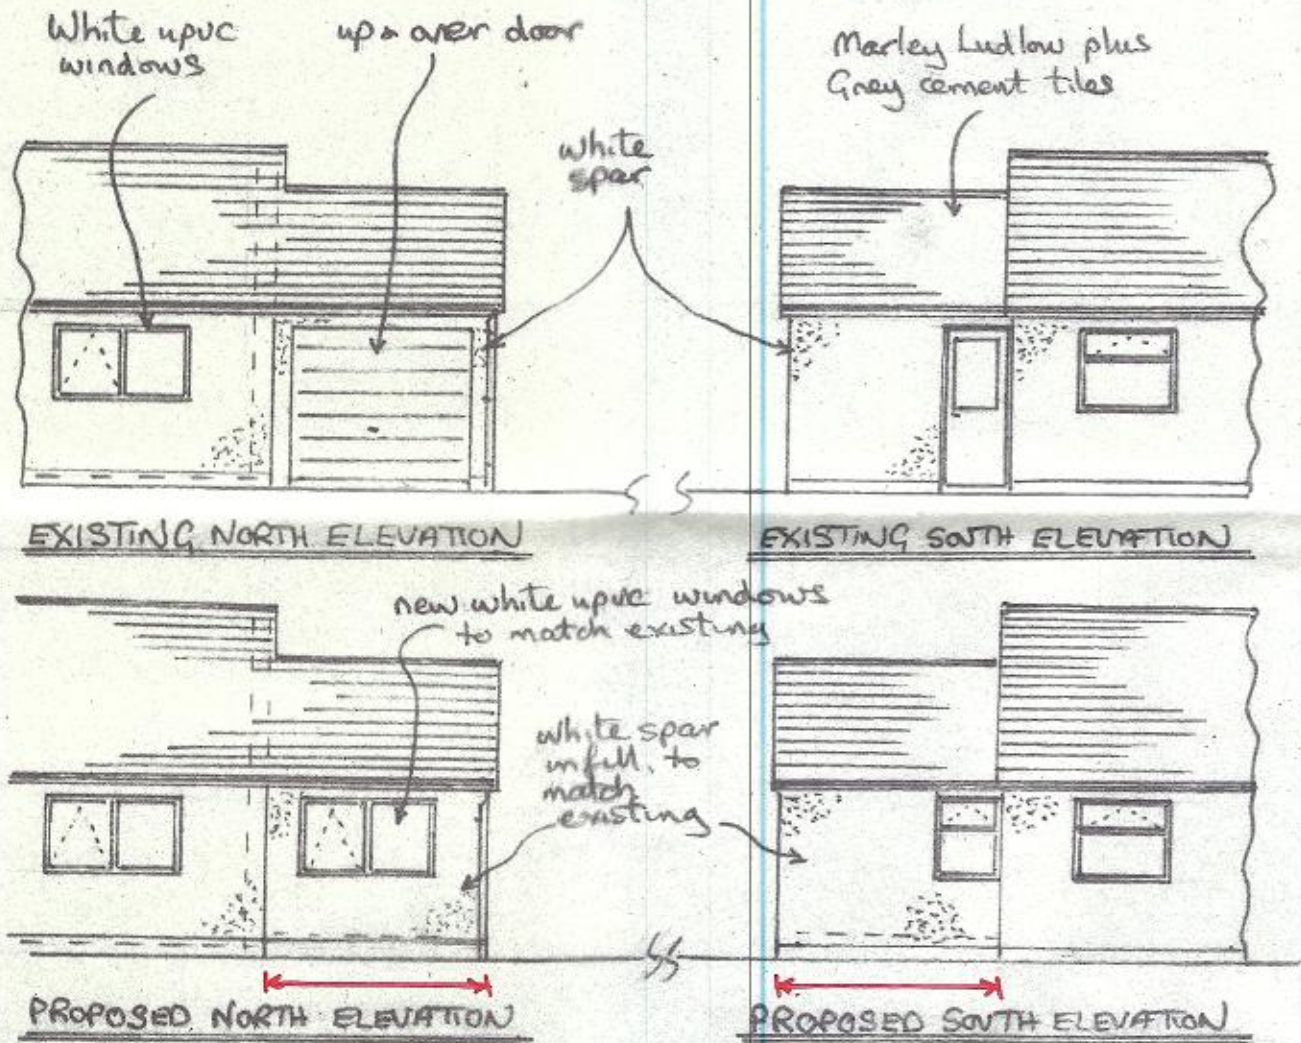 White upvc
windows
up & over door
white
spar
Marley Ludlow plus
Grey cement tiles
EXISTING NORTH ELEVATION
EXISTING SOUTH ELEVATION
new white upvc windows
to match existing
white spar
infill, to
match
existing
PROPOSED NORTH ELEVATION
PROPOSED SOUTH ELEVATION